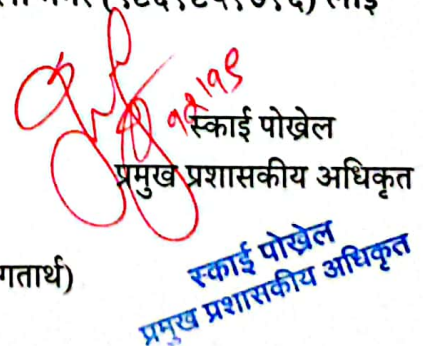 स्काई पोख्रेल
प्रमुख प्रशासकीय अधिकृत
गतार्थ)
स्काई पोख्रेल
प्रमुख प्रशासकीय अधिकृत